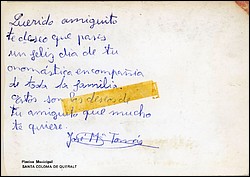 Querido amiguito
te deseo que pases
un feliz dia de tu
onomástica en compañia
de toda la familia.
estos son los deseos de
tu amiguito que mucho
te quiere.
José Mª Tomás
Piscina Municipal
SANTA COLOMA DE QUERALT